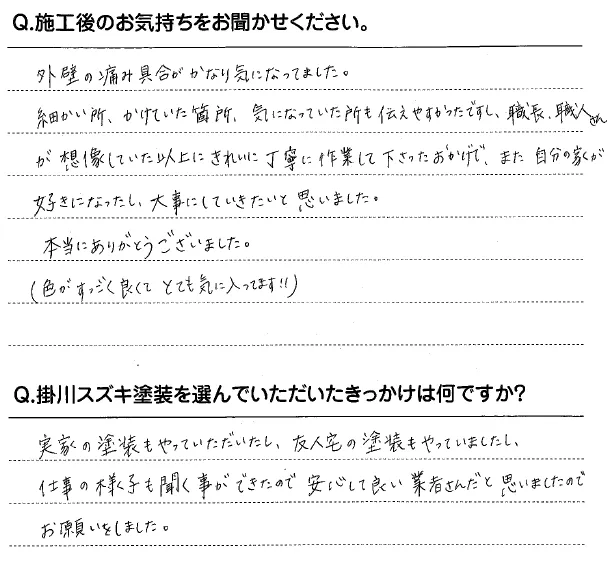 Q.施工後のお気持ちをお聞かせください。
外壁の痛み具合がかなり気になってました。
細かい所、かけていた箇所、気になっていた所も伝えやすかったですし、職長、職人さん
が想像していた以上にきれいに丁寧に作業して下さったおかげで、また自分の家が
好きになったし、大事にしていきたいと思いました。
本当にありがとうございました。
(色がすっごく良くてとても気に入ってます!!)
Q.掛川スズキ塗装を選んでいただいたきっかけは何ですか?
実家の塗装もやっていただいたし、友人宅の塗装もやっていましたし、
仕事の様く子も聞く事ができたので安心して良い業者さんだと思いましたので
お願いをしました。